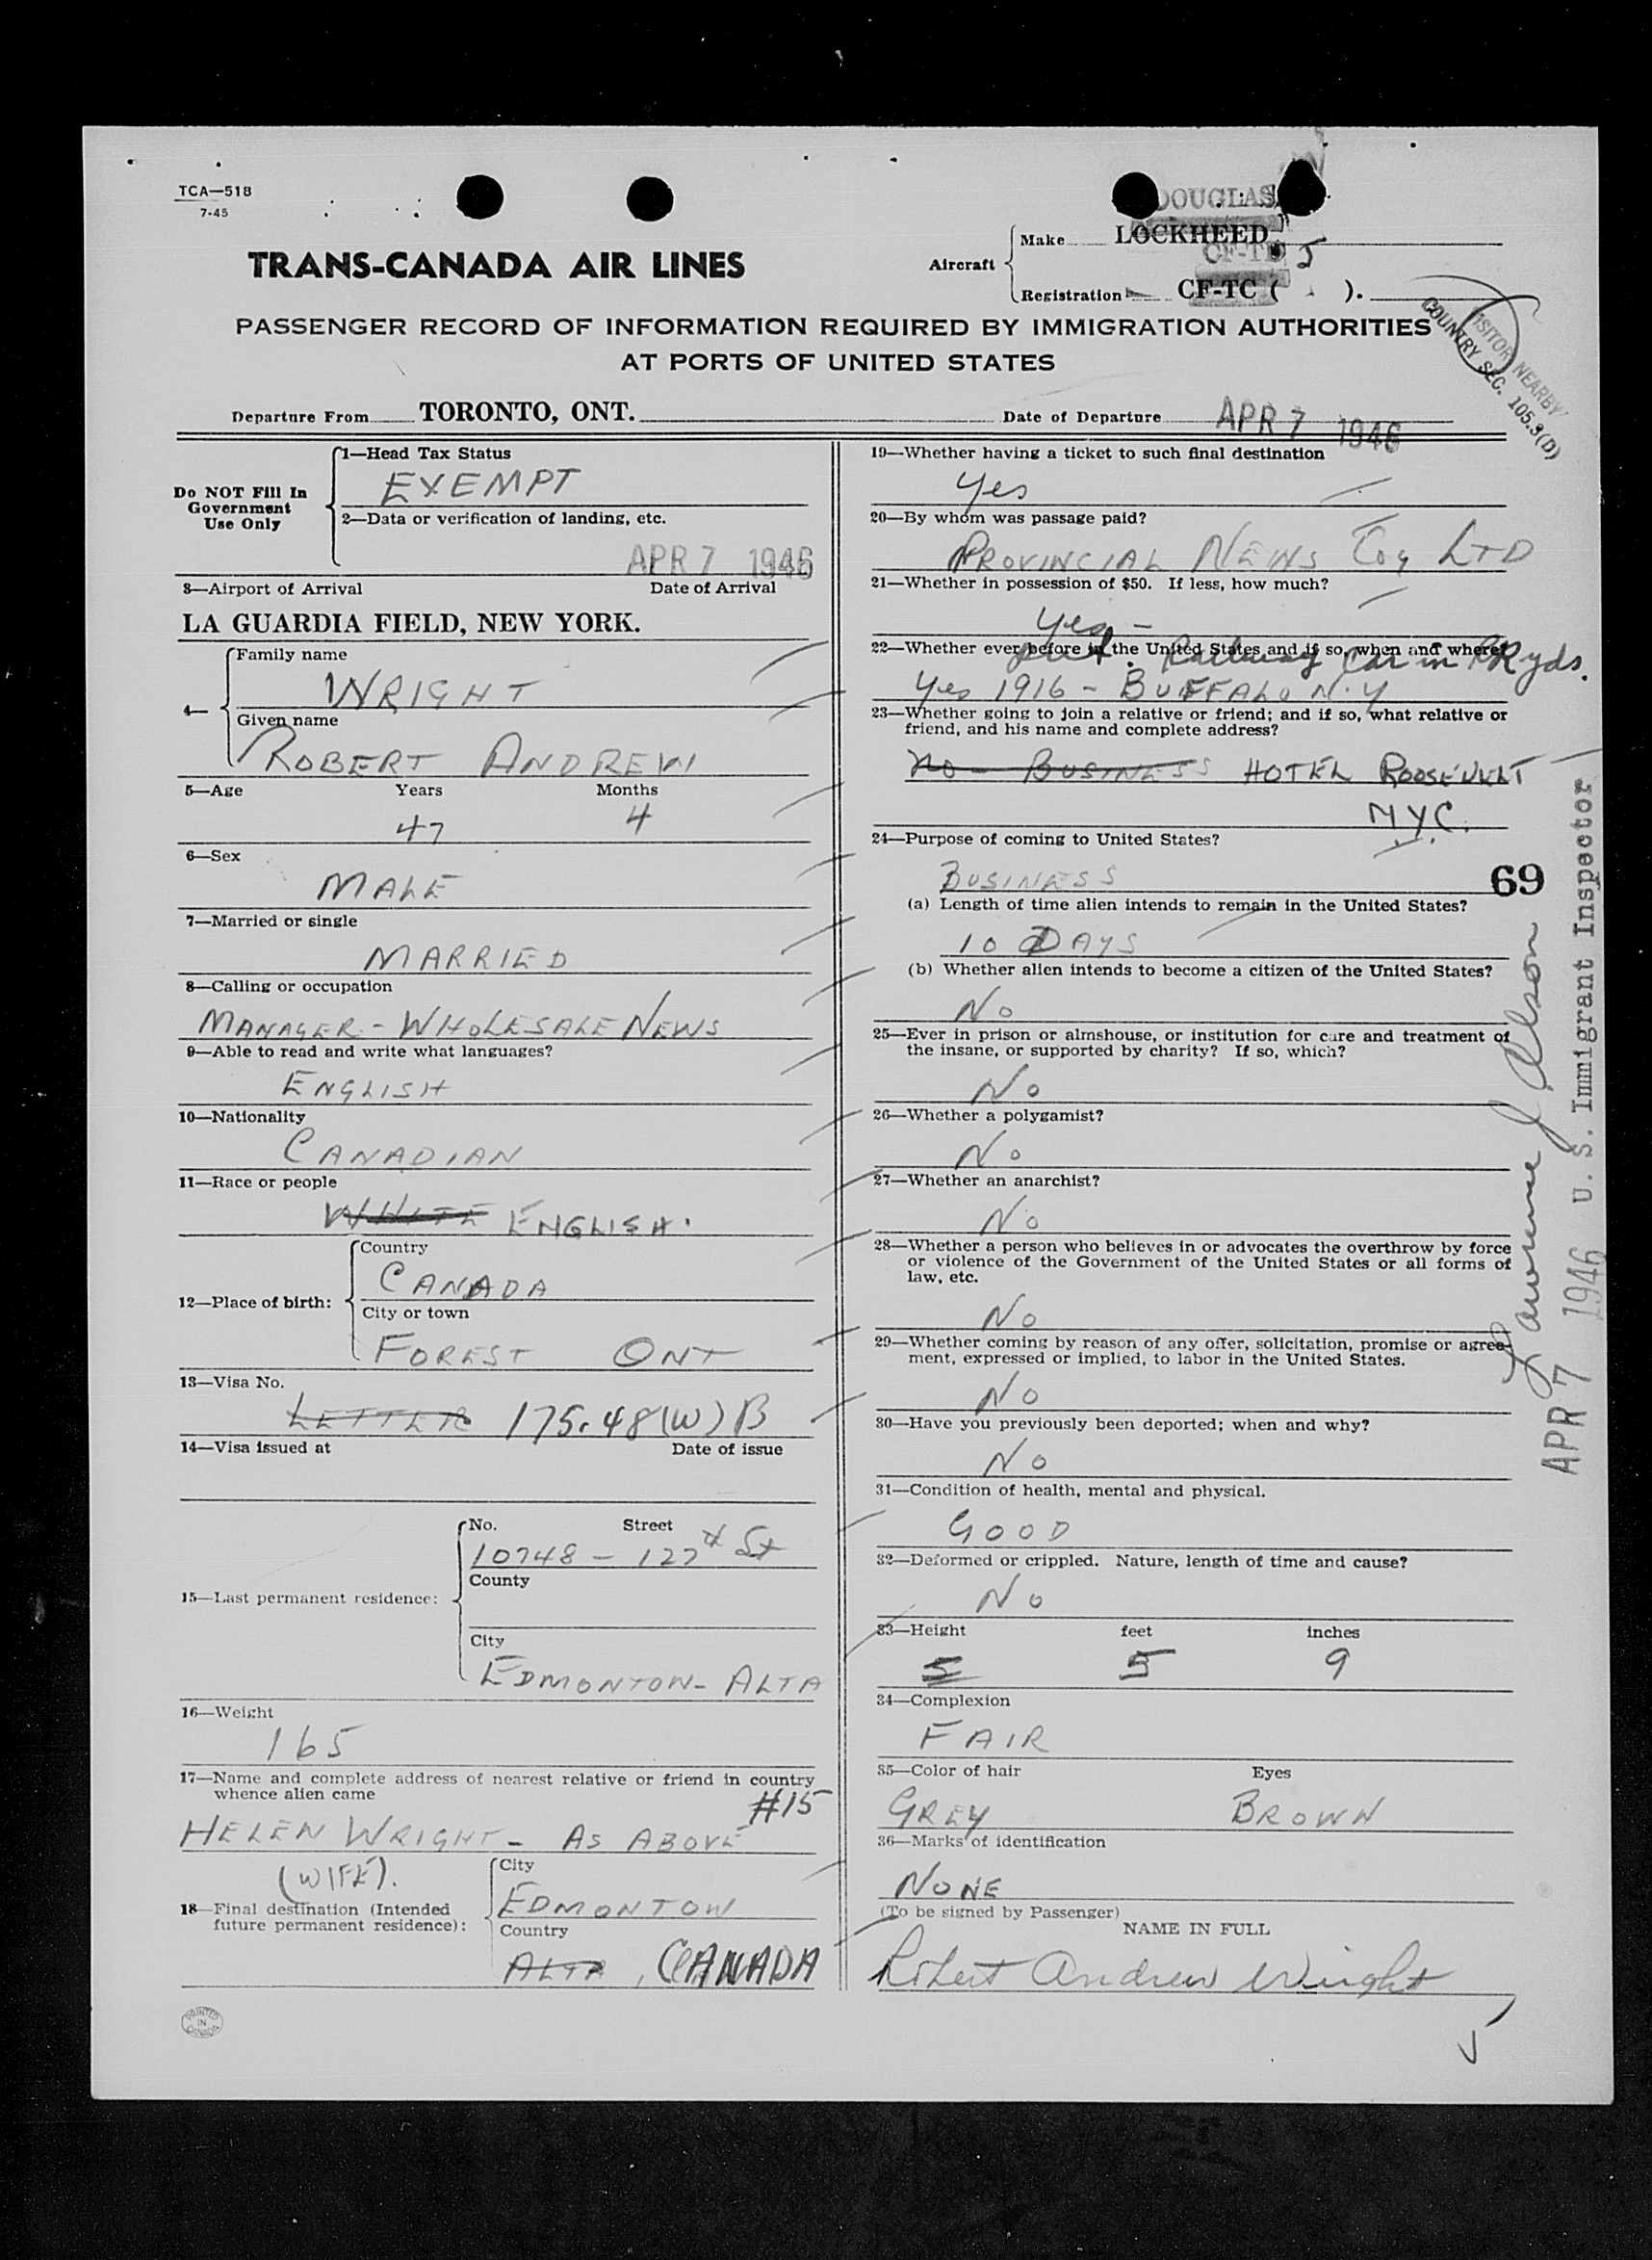 TCA—518
7-45
DOUGLAS
Make LOCKHEED
CF-T 5
TRANS-CANADA AIR LINES
Aircraft
Registration CF-TC ( ).
PASSENGER RECORD OF INFORMATION REQUIRED BY IMMIGRATION AUTHORITIES
AT PORTS OF UNITED STATES
VISITOR NEARBY
COUNTRY SEC. 105.3(D)
Departure From TORONTO, ONT. Date of Departure APR 7 1946
Do NOT Fill In
Government
Use Only
1—Head Tax Status
EXEMPT
2—Data or verification of landing, etc.
APR 7 1946
3—Airport of Arrival Date of Arrival
LA GUARDIA FIELD, NEW YORK.
4—
Family name
WRIGHT
Given name
ROBERT ANDREW
5—Age Years Months
47 4
6—Sex
MALE
7—Married or single
MARRIED
8—Calling or occupation
MANAGER - WHOLESALE NEWS
9—Able to read and write what languages?
ENGLISH
10—Nationality
CANADIAN
11—Race or people
WHITE ENGLISH.
12—Place of birth:
Country
CANADA
City or town
FOREST ONT
13—Visa No.
LETTER 175.48(W)B
14—Visa issued at Date of issue
15—Last permanent residence:
No. Street
10748 - 127 St
County
City
EDMONTON - ALTA
16—Weight
165
17—Name and complete address of nearest relative or friend in country
whence alien came
#15
HELEN WRIGHT - AS ABOVE
(WIFE).
18—Final destination (Intended
future permanent residence):
City
EDMONTON
Country
ALTA, CANADA
PRINTED
IN
CANADA
19—Whether having a ticket to such final destination
Yes
20—By whom was passage paid?
PROVINCIAL NEWS Coy LTD
21—Whether in possession of $50. If less, how much?
Yes -
22—Whether ever before in the United States and if so, when and where?
Railway car in RR yds.
Yes 1916 - BUFFALO N.Y
23—Whether going to join a relative or friend; and if so, what relative or
friend, and his name and complete address?
No - BUSINESS HOTEL ROOSEVELT
NYC.
24—Purpose of coming to United States?
BUSINESS
69
(a) Length of time alien intends to remain in the United States?
10 DAYS
(b) Whether alien intends to become a citizen of the United States?
No
25—Ever in prison or almshouse, or institution for care and treatment of
the insane, or supported by charity? If so, which?
No
26—Whether a polygamist?
No
27—Whether an anarchist?
No
28—Whether a person who believes in or advocates the overthrow by force
or violence of the Government of the United States or all forms of
law, etc.
No
29—Whether coming by reason of any offer, solicitation, promise or agree-
ment, expressed or implied, to labor in the United States.
No
30—Have you previously been deported; when and why?
No
31—Condition of health, mental and physical.
GOOD
32—Deformed or crippled. Nature, length of time and cause?
No
33—Height feet inches
5 5 9
34—Complexion
FAIR
35—Color of hair Eyes
GREY BROWN
36—Marks of identification
NONE
(To be signed by Passenger)
NAME IN FULL
Robert Andrew Wright
Lawrence J
U. S. Immigrant Inspector
APR 7 1946